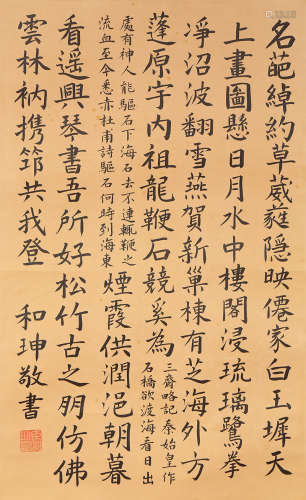 名葩綽約草葳蕤隱映僊家白玉墀天
上畫圖懸日月水中樓閣浸琉璃鷺拳
凈沼波翻雪燕賀新巢棟有芝海外方
蓬原宇內祖龍鞭石競奚為
三齊略記秦始皇作
石橋欲渡海看日出
處有神人能驅石下海石去不速輒鞭之
流血至今悉赤杜甫詩驅石何時到海東
煙霞供潤浥朝暮
看遙興琴書吾所好松竹古之朋仿佛
雲林衲携筇共我登
和珅敬書